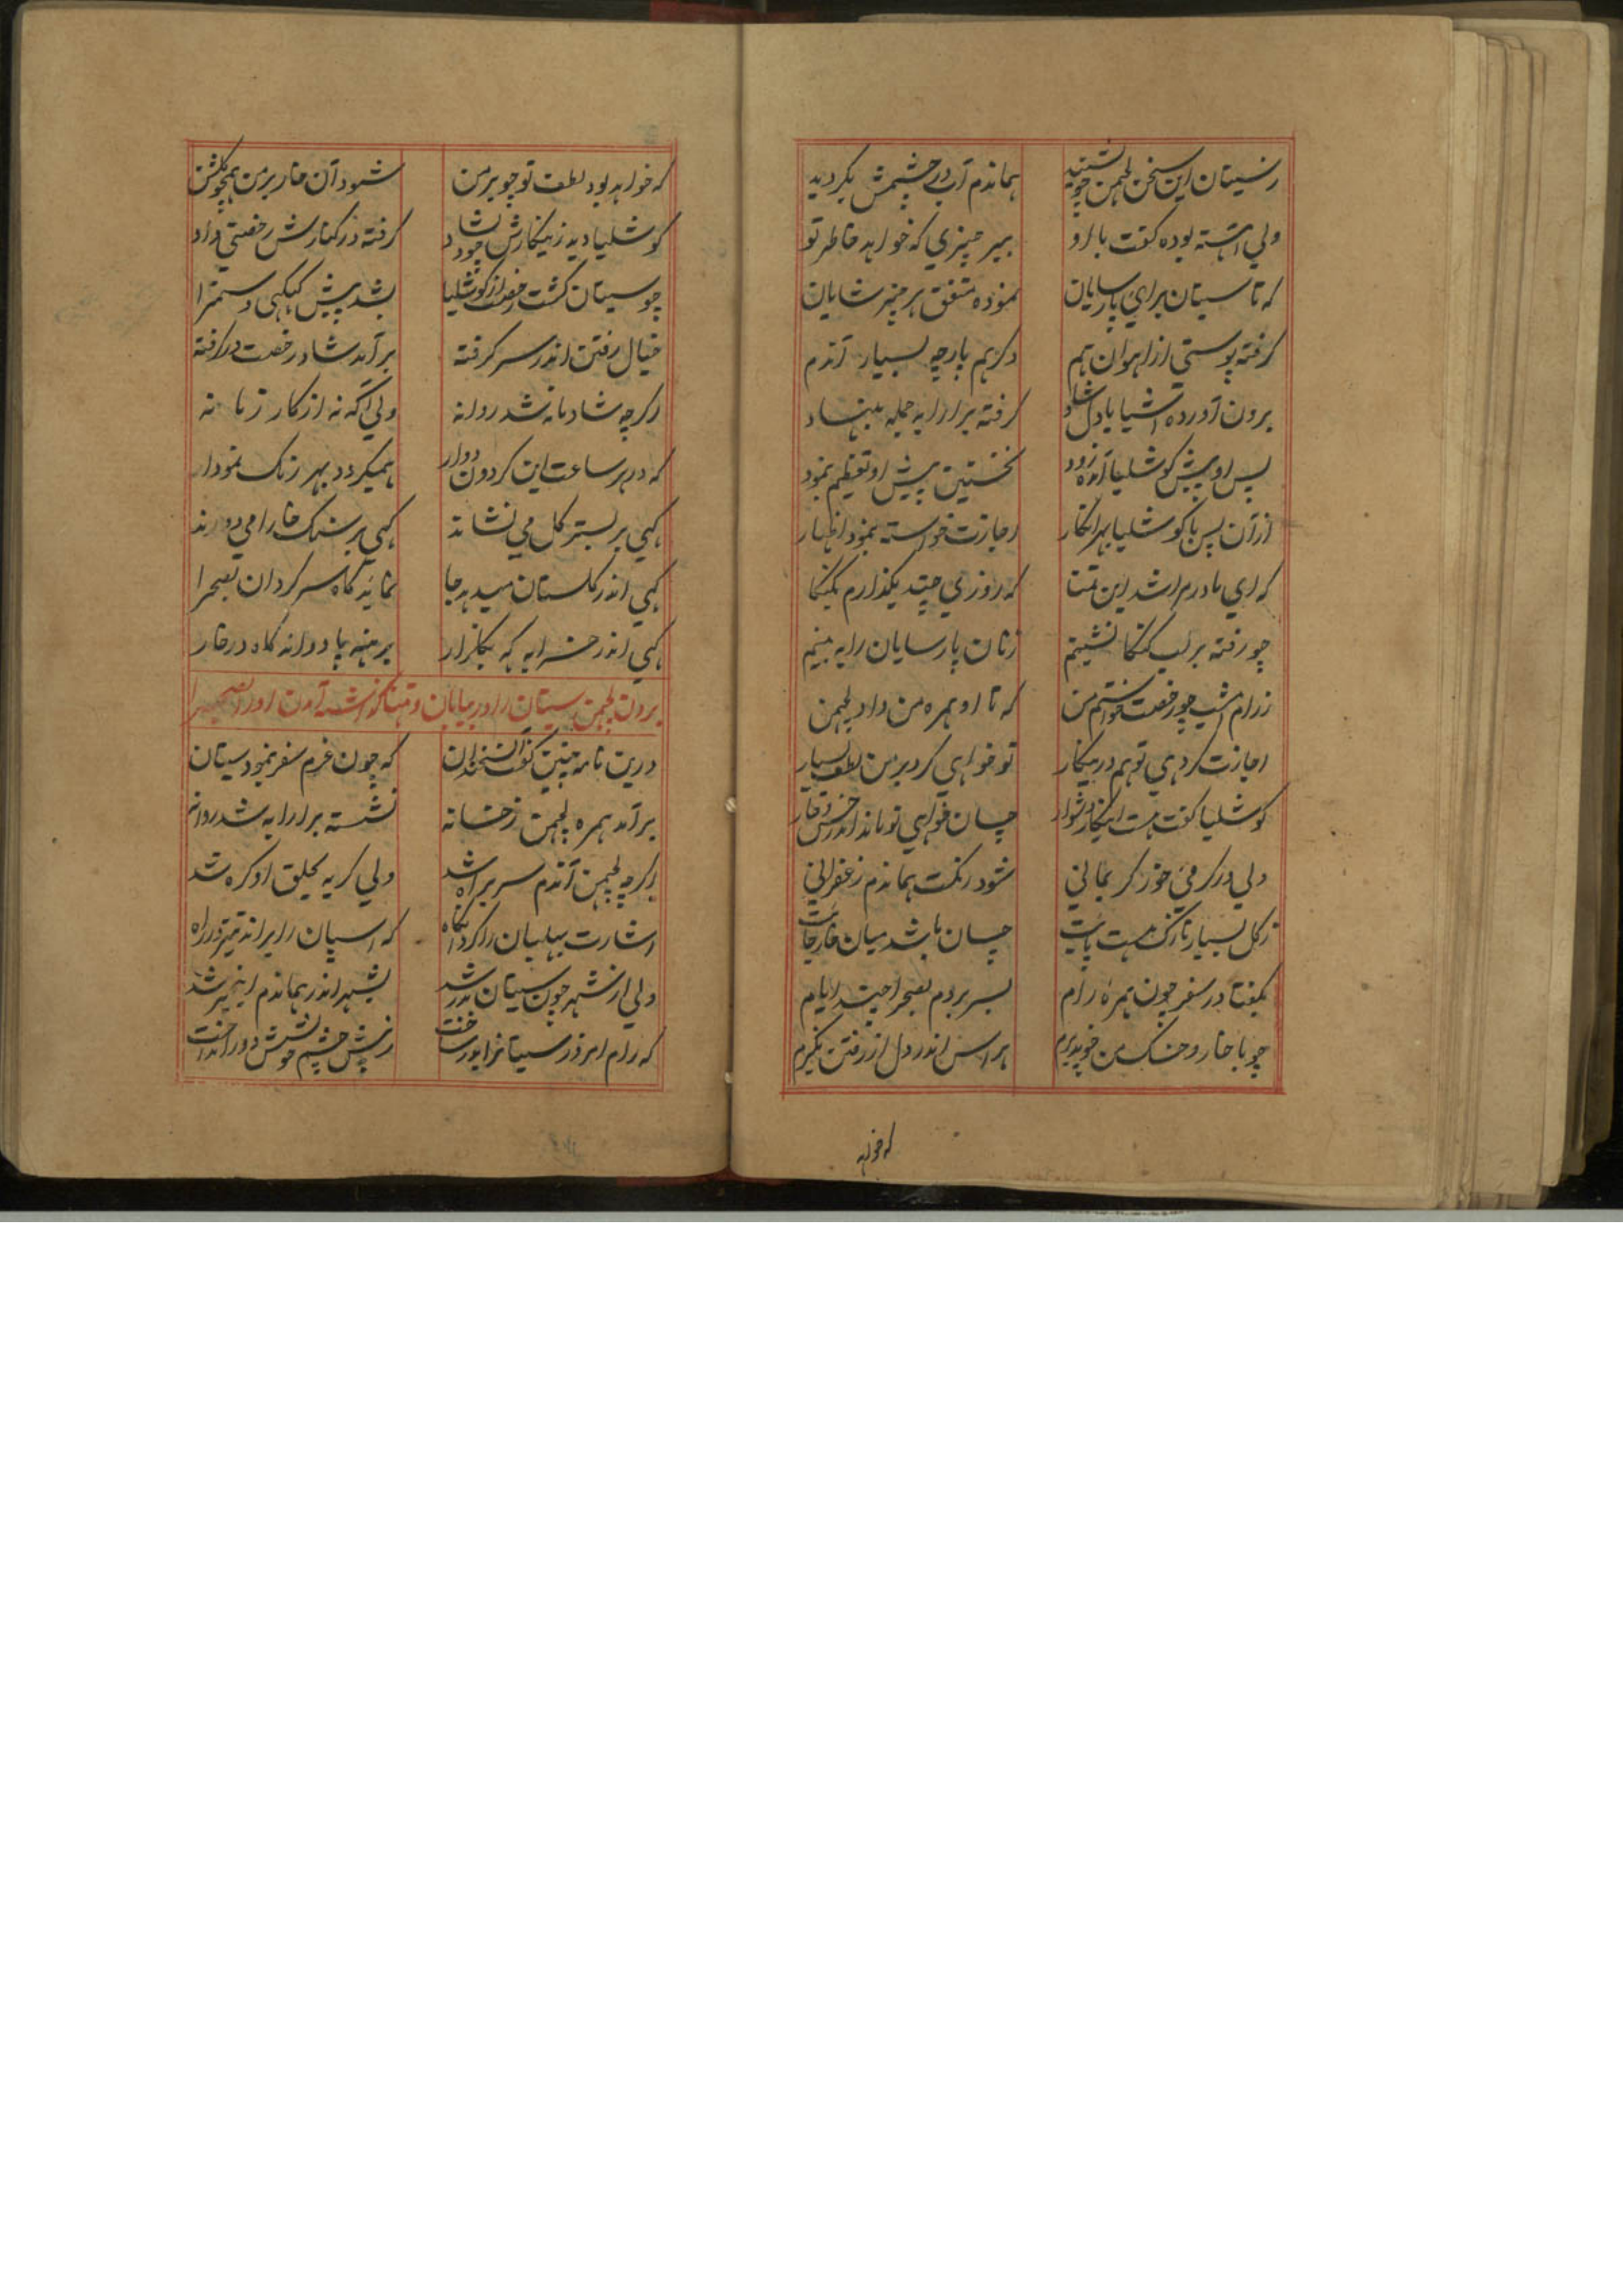 ز سیتان این سخن لچمن چو بشنید هماندم آب در چشمش بگردید
ولی آهسته بوده گفت با او ببر چیزی که خواهد خاطر تو
که تا سیتان برای پارسایان نموده متفق هر چیز شایان
گرفته پوستی از آهوان هم دگر هم پارچه بسیار آندم
برون آورده اشیا با دل شاد گرفته بر ارابه جمله بنهاد
پس او پیش کوشلیا آمده زود نخستین پیش او تعظیم بنمود
از آن پس با کوشلیا بهر اینکار اجازت خواسته بنمود اظهار
که ای مادر مرا شد این تمنا که روزی چند بگذارم بگنگا
چو رفته بر لب گنگا نشینم زنان پارسایان را به بینم
ز رام امشب چو رخصت خواستم من که تا او همره من داد لچمن
اجازت گر دهی تو هم درینکار تو خواهی کرد بر من لطف بسیار
کوشلیا گفت هست اینکار دشوار چسان خواهی تو ماند اندر خس و خار
ولی در گرمی خور گر بمانی شود رنگت هماندم زعفرانی
ز گل بسیار نازک هست پایت چسان باشد میان خار جایت
بگفتا در سفر چون همره رام بسر بردم بصحرا چند ایام
چو با خار و خسک من خو پذیرم هراس اندر دل از رفتن نگیرم
که خواهد
که خواهد بود لطف تو چو بر من شود آن خار بر من همچو گلشن
کوشلیا دید زینکارش چو دلشاد گرفته در کنارش رخصتی داد
چو سیتان گشت رخصت از کوشلیا بشد پیش کیکیی و سمترا
خیال رفتن اندر سر گرفته برآمد شاد رخصت در گرفته
اگرچه شادمانه شد روانه ولی آگه نه از کار زمانه
که در هر ساعت این گردون دوار همیگردد بهر رنگ نمودار
گهی بر بستر گل می نشاند گهی بر سنگ خارا می دواند
گهی اندر گلستان میدهد جا نماید گاه سرگردان بصحرا
گهی اندر خرابه گه بگلزار برهنه پا دواند گاه در خار
بردن لچمن سیتان را در بیابان و تنها گذاشته آمدن او را بصحرا
درین نامه چنین گفت آن سخندان که چون عزم سفر بنمود سیتان
برآمد همره لچمن ز خانه نشسته بر ارابه شد روانه
اگرچه لچمن آندم سر براه شد ولی گریه بحلق او گره شد
اشارت بهلبان را کرد آنگاه که اسپان را براند تیز در راه
ولی از شهر چون سیتان بدر شد بشهر اندر هماندم این خبر شد
که رام امروز سیتان را بدر ساخت ز پیش چشم خویشش دور انداخت